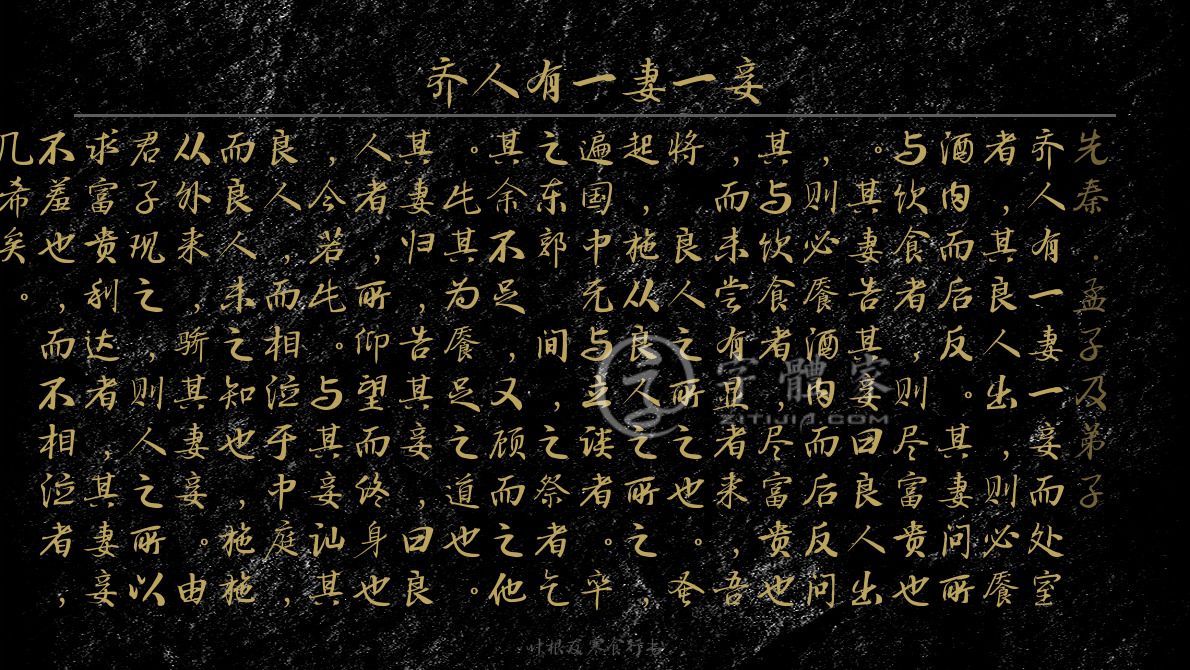 齐人有一妻一妾
先秦·孟子及弟子
齐人有一妻一妾而处室
者，其良人出，则必餍
酒肉而后反。其妻问所
与饮食者，则尽富贵也
。其妻告其妾曰良人出
，则必餍酒肉而后反问
其与饮食者，尽富贵也
，而未尝有显者来，吾
将良人之所之也。蚤
起，施从良人之所之，
遍国中无与立谈者。卒
之东郭间，之祭者乞
其余不足，又顾而之他
。此其为餍足之道也。
其妻归，告其妾，曰良
人者，所仰望而终身也
，今若此。与其妾讪其
良人，而相泣于中庭，
而良人未之知也，施施
从外来，骄其妻妾。由
君子现之，则人之所以
求富贵利达者，其妻妾
不羞也，而不相泣者，
几希矣。
字體家
ZITIJIA.COM
叶根友寒食行书